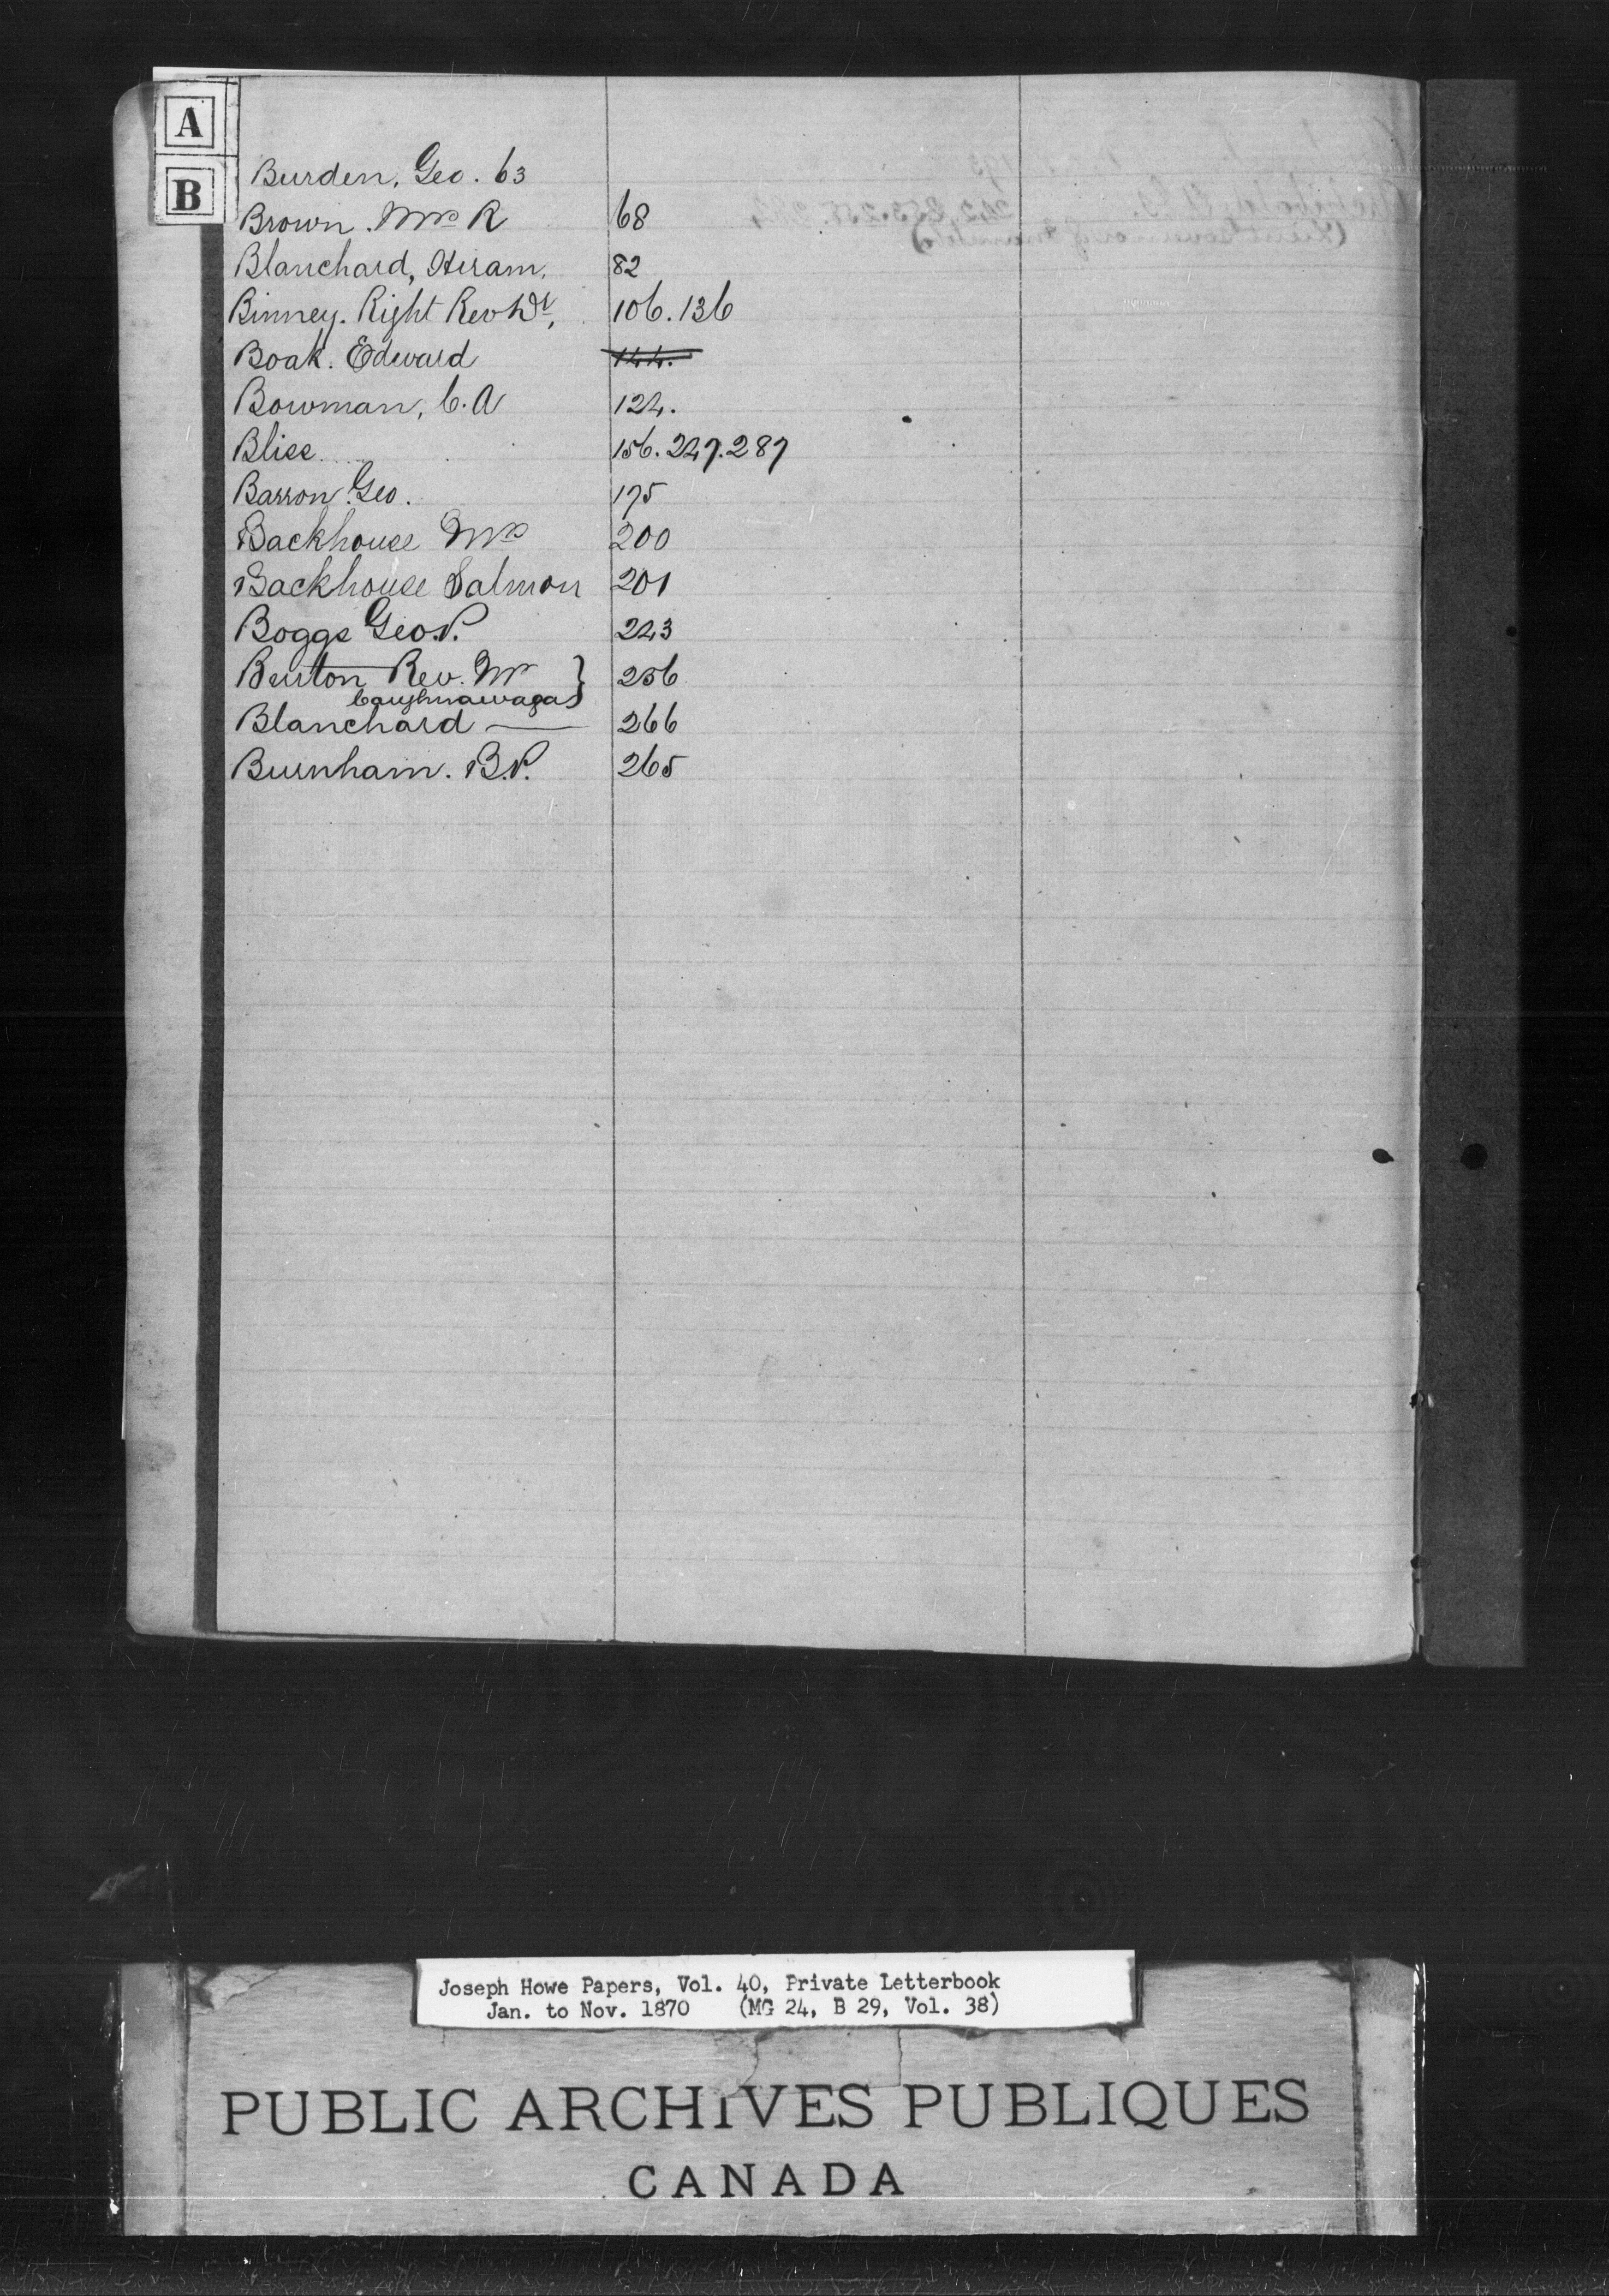 A
B
Burden, Geo. 63
Brown. Mrs R 68
Blanchard, Hiram. 82
Binney. Right Rev Dr, 106. 136
Boak. Edward 144.
Bowman, C. A 124.
Bliss 156. 247. 287
Barron Geo. 175
Backhouse Mrs 200
Backhouse Salmon 201
Boggs Geo. P. 243
Burton Rev. Mr } 256
Caughnawaga
Blanchard — 266
Burnham. B. P. 265
Joseph Howe Papers, Vol. 40, Private Letterbook
Jan. to Nov. 1870 (MG 24, B 29, Vol. 38)
PUBLIC ARCHIVES PUBLIQUES
CANADA